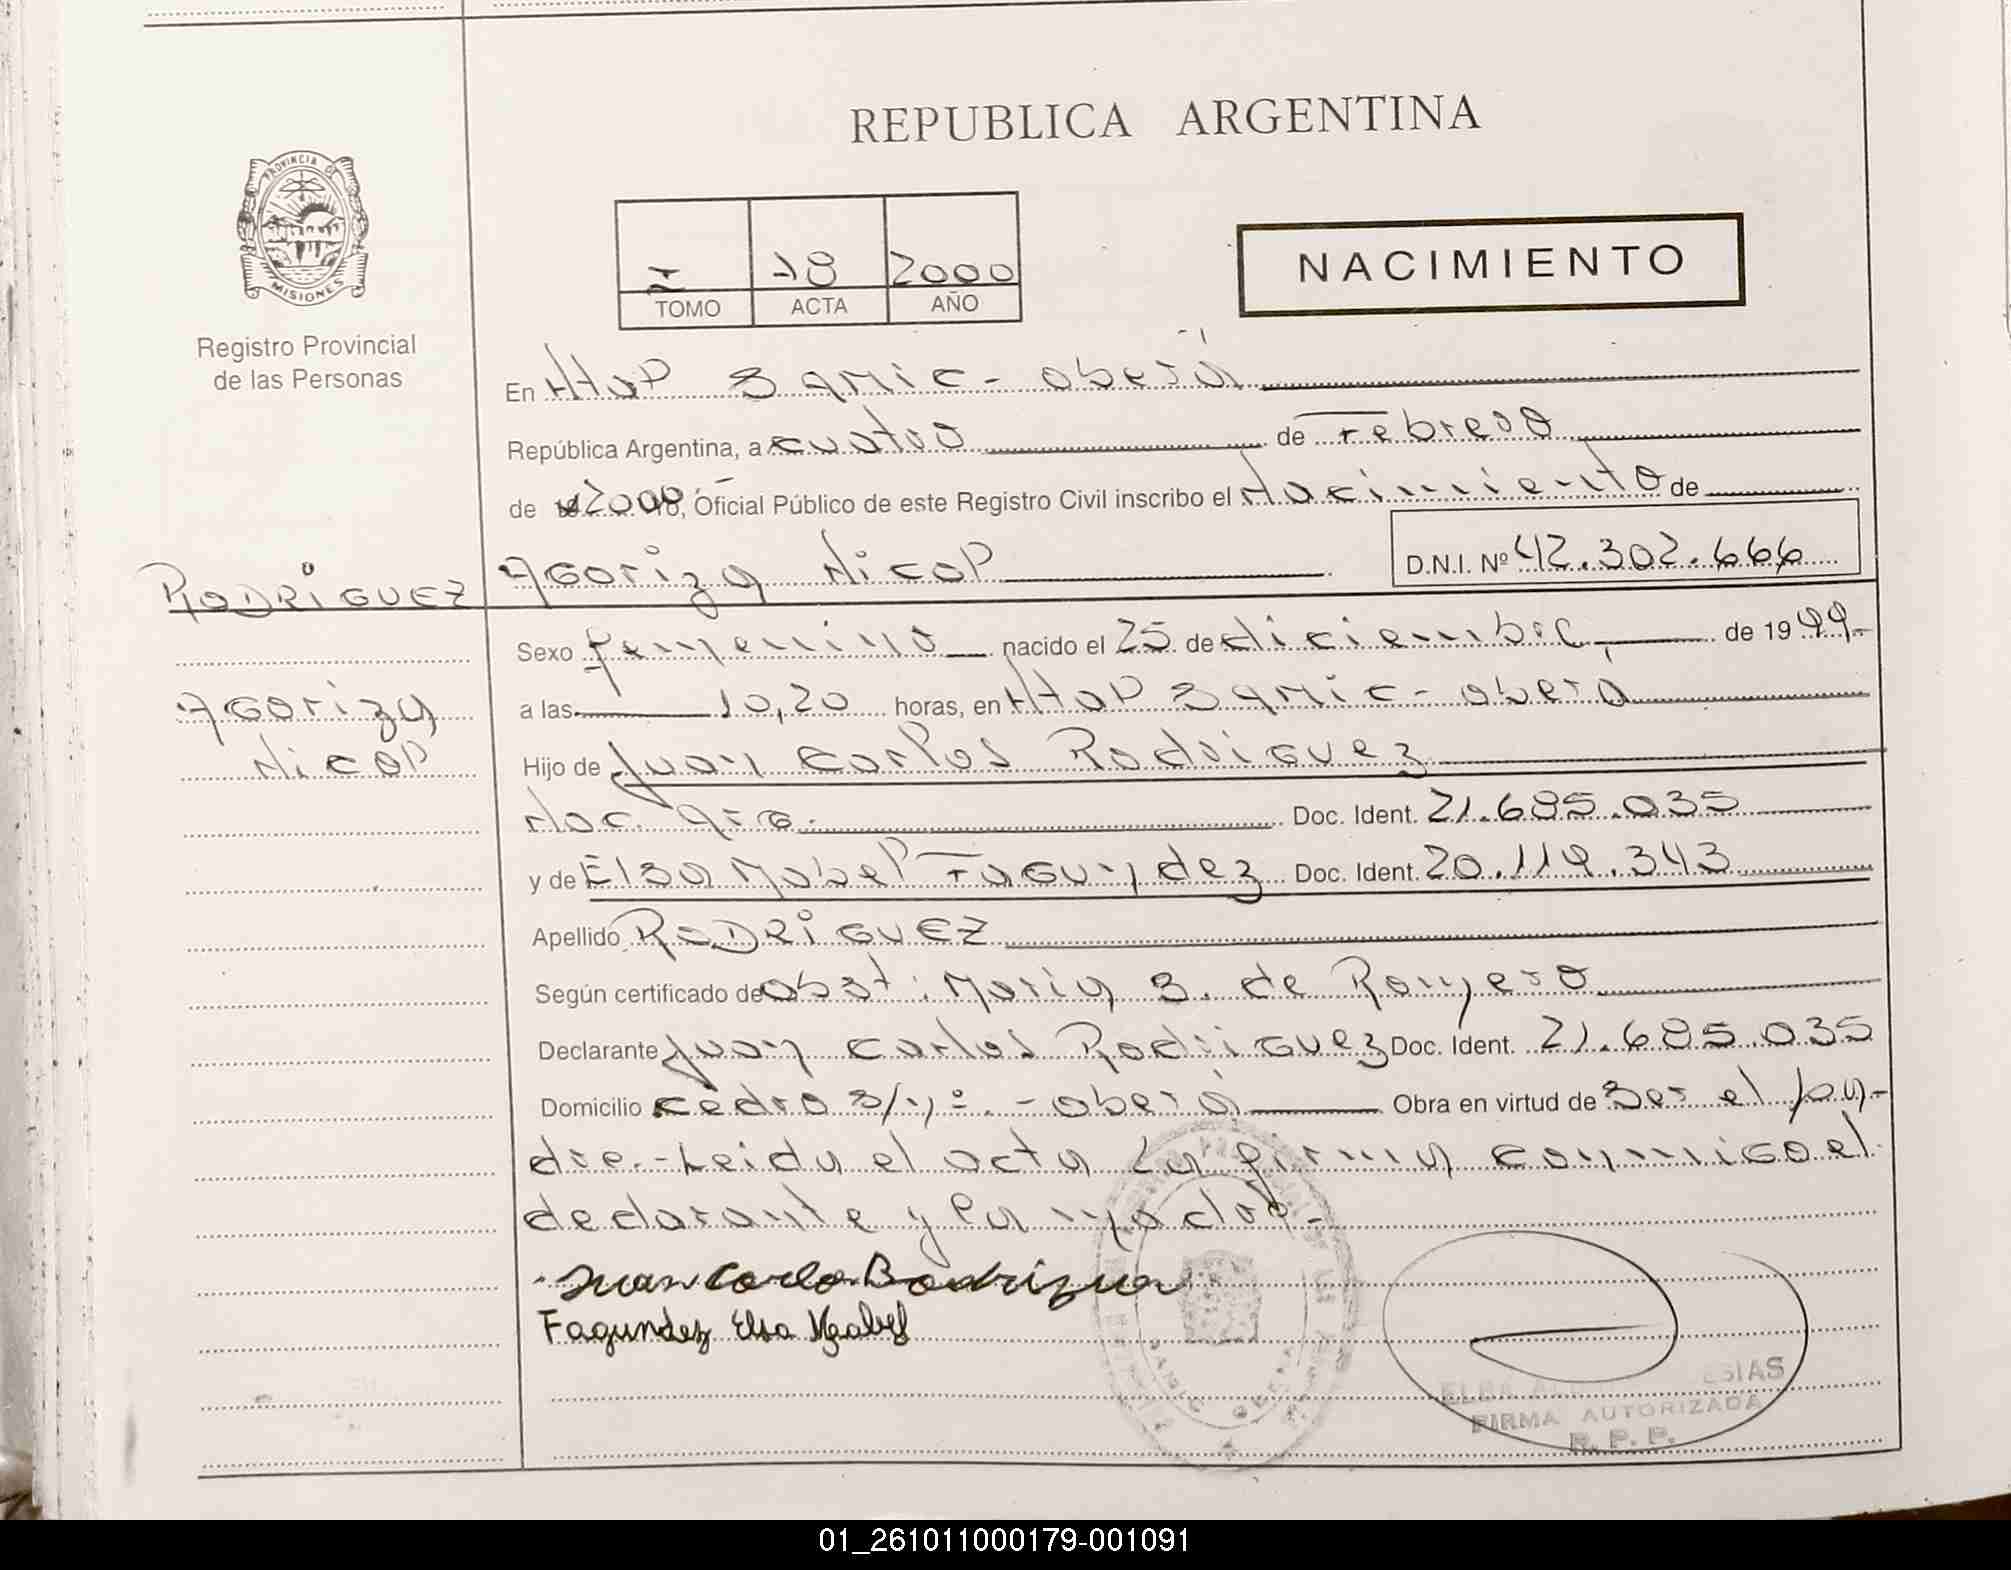 REPUBLICA ARGENTINA
PROVINCIA DE
MISIONES
Registro Provincial
de las Personas
I 78 2000
TOMO ACTA AÑO
NACIMIENTO
En Hosp Samic - oberá
República Argentina, a cuatro de Febrero
de 2000, Oficial Público de este Registro Civil inscribo el Nacimiento de
Nicol D.N.I. Nº 42.302.666
RODRIGUEZ
Sexo femenino nacido el 25 de diciembre de 1999-
a las 10,20 horas, en Hosp Samic - oberá
Nicol
Hijo de Juan Carlos Rodriguez
Nac. Arg. Doc. Ident. 21.685.035
y de Elsa Mabel Fagundez Doc. Ident. 20.119.343
Apellido RODRIGUEZ
Según certificado de obst. Maria S. de Romero
Declarante Juan Carlos Rodriguez Doc. Ident. 21.685.035
Domicilio cedro s/nº. - oberá Obra en virtud de ser el pa-
dre.- Leida el acta La firma conmigo el
declarante y la madre.-
Juan Carlo Rodriguez
Fagundez Elsa Mabel
FIRMA AUTORIZADA
R. P. P.
01_261011000179-001091